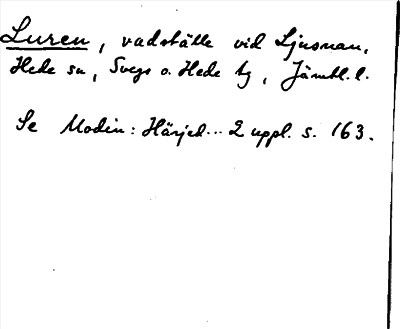 Luren, vadställe vid Ljusnan,
Hede sn, Svegs o. Hede tg, Jämtl. l.
Se Modin: Härjed... 2 uppl. s. 163.